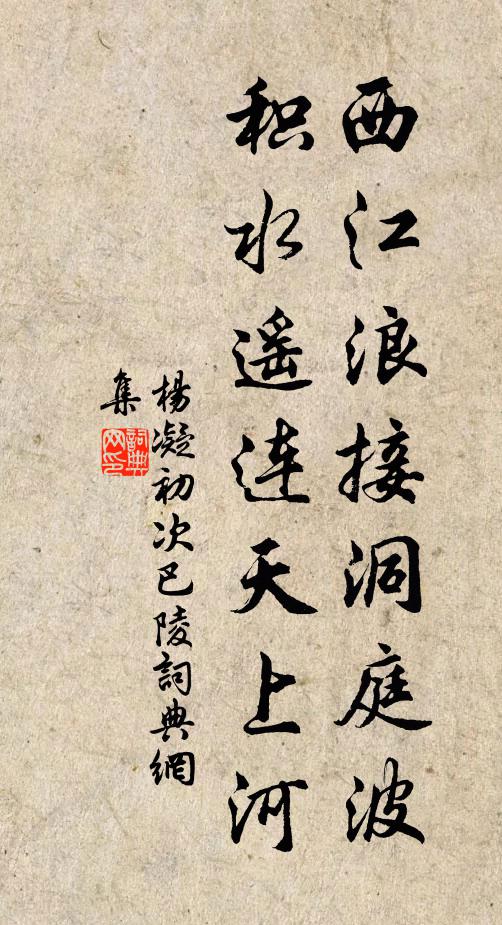 西江浪接洞庭波
积水遥连天上河
楊凝初次巴陵詞典網
集
詞典网印